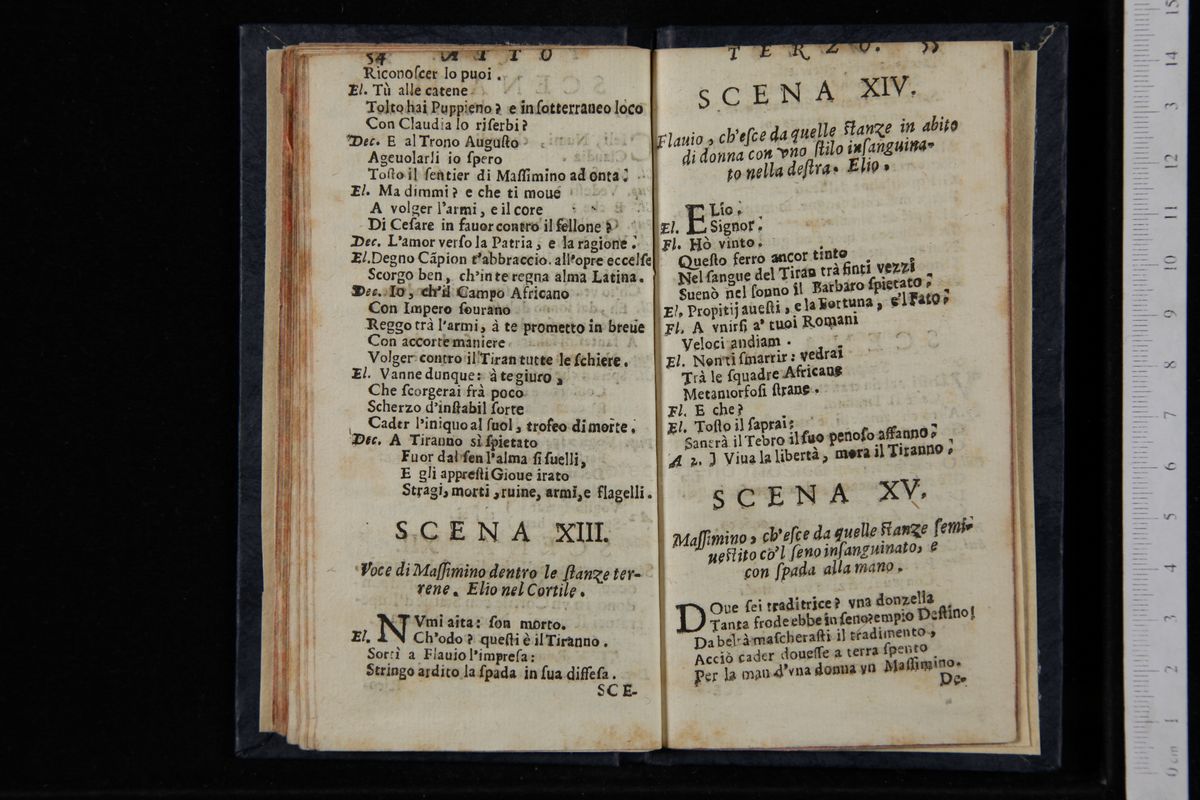 54 ATTO
Riconoſcer lo puoi.
El. Tù alle catene
Tolto hai Puppieno? e in ſotterraneo loco
Con Claudia lo riſerbi?
Dec. E al Trono Auguſto
Ageuolarli io ſpero
Toſto il ſentier di Maſſimino ad onta.
El. Ma dimmi? e che ti moue
A volger l'armi, e il core
Di Ceſare in fauor contro il fellone?
Dec. L'amor verſo la Patria, e la ragione.
El. Degno Cãpion t'abbraccio. all'opre eccelſe
Scorgo ben, ch'in te regna alma Latina.
Dec. Io, ch'il Campo Africano
Con Impero ſourano
Reggo trà l'armi, à te prometto in breue
Con accorte maniere
Volger contro il Tiran tutte le ſchiere.
El. Vanne dunque: à te giuro,
Che ſcorgerai frà poco
Scherzo d'inſtabil ſorte
Cader l'iniquo al ſuol, trofeo di morte.
Dec. A Tiranno sì ſpietato
Fuor dal ſen l'alma ſi ſuelli,
E gli appreſti Gioue irato
Stragi, morti, ruine, armi, e flagelli.
SCENA XIII.
Voce di Maſſimino dentro le ſtanze ter-
rene. Elio nel Cortile.
NVmi aita: ſon morto.
El. Ch'odo? queſti è il Tiranno.
Sortì a Flauio l'impreſa:
Stringo ardito la ſpada in ſua diffeſa.
SCE-
TERZO. 55
SCENA XIV.
Flauio, ch'eſce da quelle ſtanze in abito
di donna con vno ſtilo inſanguina-
to nella deſtra. Elio.
ELio.
El. Signor.
Fl. Hò vinto.
Queſto ferro ancor tinto
Nel ſangue del Tiran trà finti vezzi
Suenò nel ſonno il Barbaro ſpietato.
El. Propitij aueſti, e la Fortuna, e'l Fato.
Fl. A vnirſi a' tuoi Romani
Veloci andiam.
El. Non ti ſmarrir: vedrai
Trà le ſquadre Africane
Metamorfoſi ſtrane.
Fl. E che?
El. Toſto il ſaprai:
Sanerà il Tebro il ſuo penoſo affanno.
A 2. J Viua la libertà, mora il Tiranno.
SCENA XV.
Maſſimino, ch'eſce da quelle ſtanze ſemi-
ueſtito cõ'l ſeno inſanguinato, e
con ſpada alla mano.
DOue ſei traditrice? vna donzella
Tanta frode ebbe in ſeno? empio Deſtino!
Da beltà maſcheraſti il tradimento,
Acciò cader doueſſe a terra ſpento
Per la man d'vna donna vn Maſſimino.
De-
15
14
3
12
11
10
9
8
7
6
5
4
3
2
1
0 cm